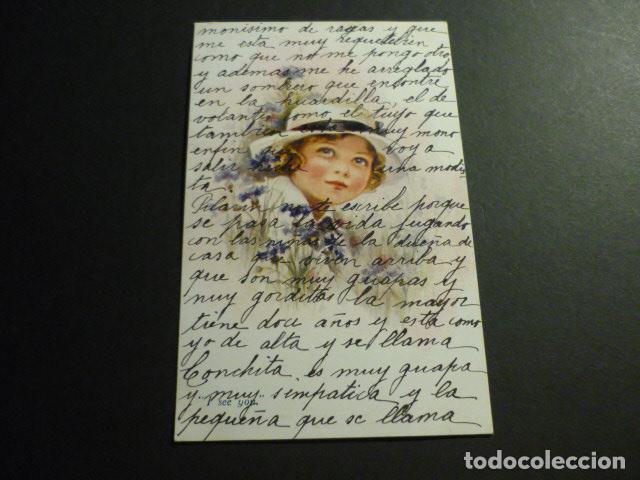 monisimo de rayas y que
me esta muy requetebien
como que no me pongo otro
y ademas me he arreglado
un sombrero que encontre
en la huardilla, el de
volantes como el tuyo que
tambien muy mono
enfin voy a
salir una modis
ta.
Pilarin no te escribe porque
se pasa la vida jugando
con las niñas de la dueña de
casa que viven arriba y
que son muy guapas y
muy gorditas la mayor
tiene doce años y esta como
yo de alta y se llama
Conchita es muy guapa
y muy simpatica y la
I see you.
pequeña que se llama
todocoleccion.net